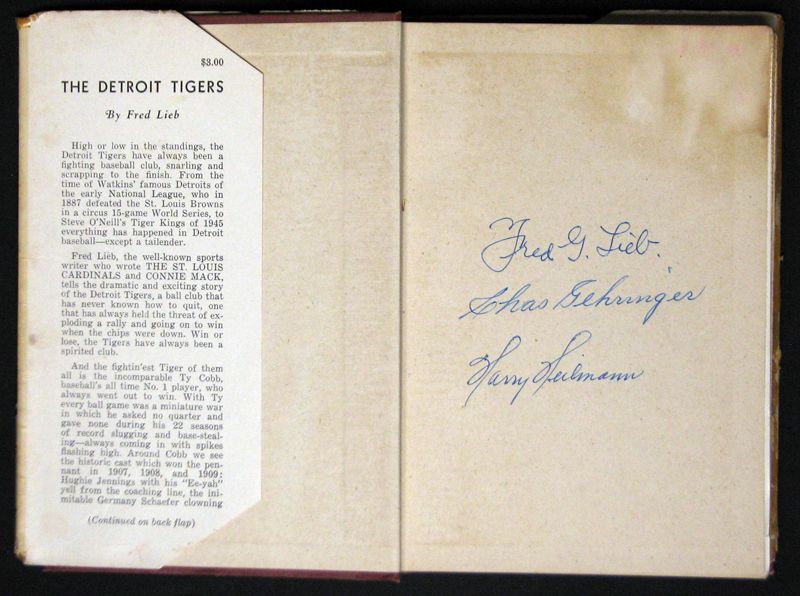 $3.00
THE DETROIT TIGERS
By Fred Lieb
High or low in the standings, the
Detroit Tigers have always been a
fighting baseball club, snarling and
scrapping to the finish. From the
time of Watkins' famous Detroits of
the early National League, who in
1887 defeated the St. Louis Browns
in a circus 15-game World Series, to
Steve O'Neill's Tiger Kings of 1945
everything has happened in Detroit
baseball—except a tailender.
Fred Lieb, the well-known sports
writer who wrote THE ST. LOUIS
CARDINALS and CONNIE MACK,
tells the dramatic and exciting story
of the Detroit Tigers, a ball club that
has never known how to quit, one
that has always held the threat of ex-
ploding a rally and going on to win
when the chips were down. Win or
lose, the Tigers have always been a
spirited club.
And the fightin'est Tiger of them
all is the incomparable Ty Cobb,
baseball's all time No. 1 player, who
always went out to win. With Ty
every ball game was a miniature war
in which he asked no quarter and
gave none during his 22 seasons
of record slugging and base-steal-
ing—always coming in with spikes
flashing high. Around Cobb we see
the historic cast which won the pen-
nant in 1907, 1908, and 1909:
Hughie Jennings with his "Ee-yah"
yell from the coaching line, the ini-
mitable Germany Schaefer clowning
(Continued on back flap)
Fred G. Lieb.
Chas Gehringer
Harry Heilmann